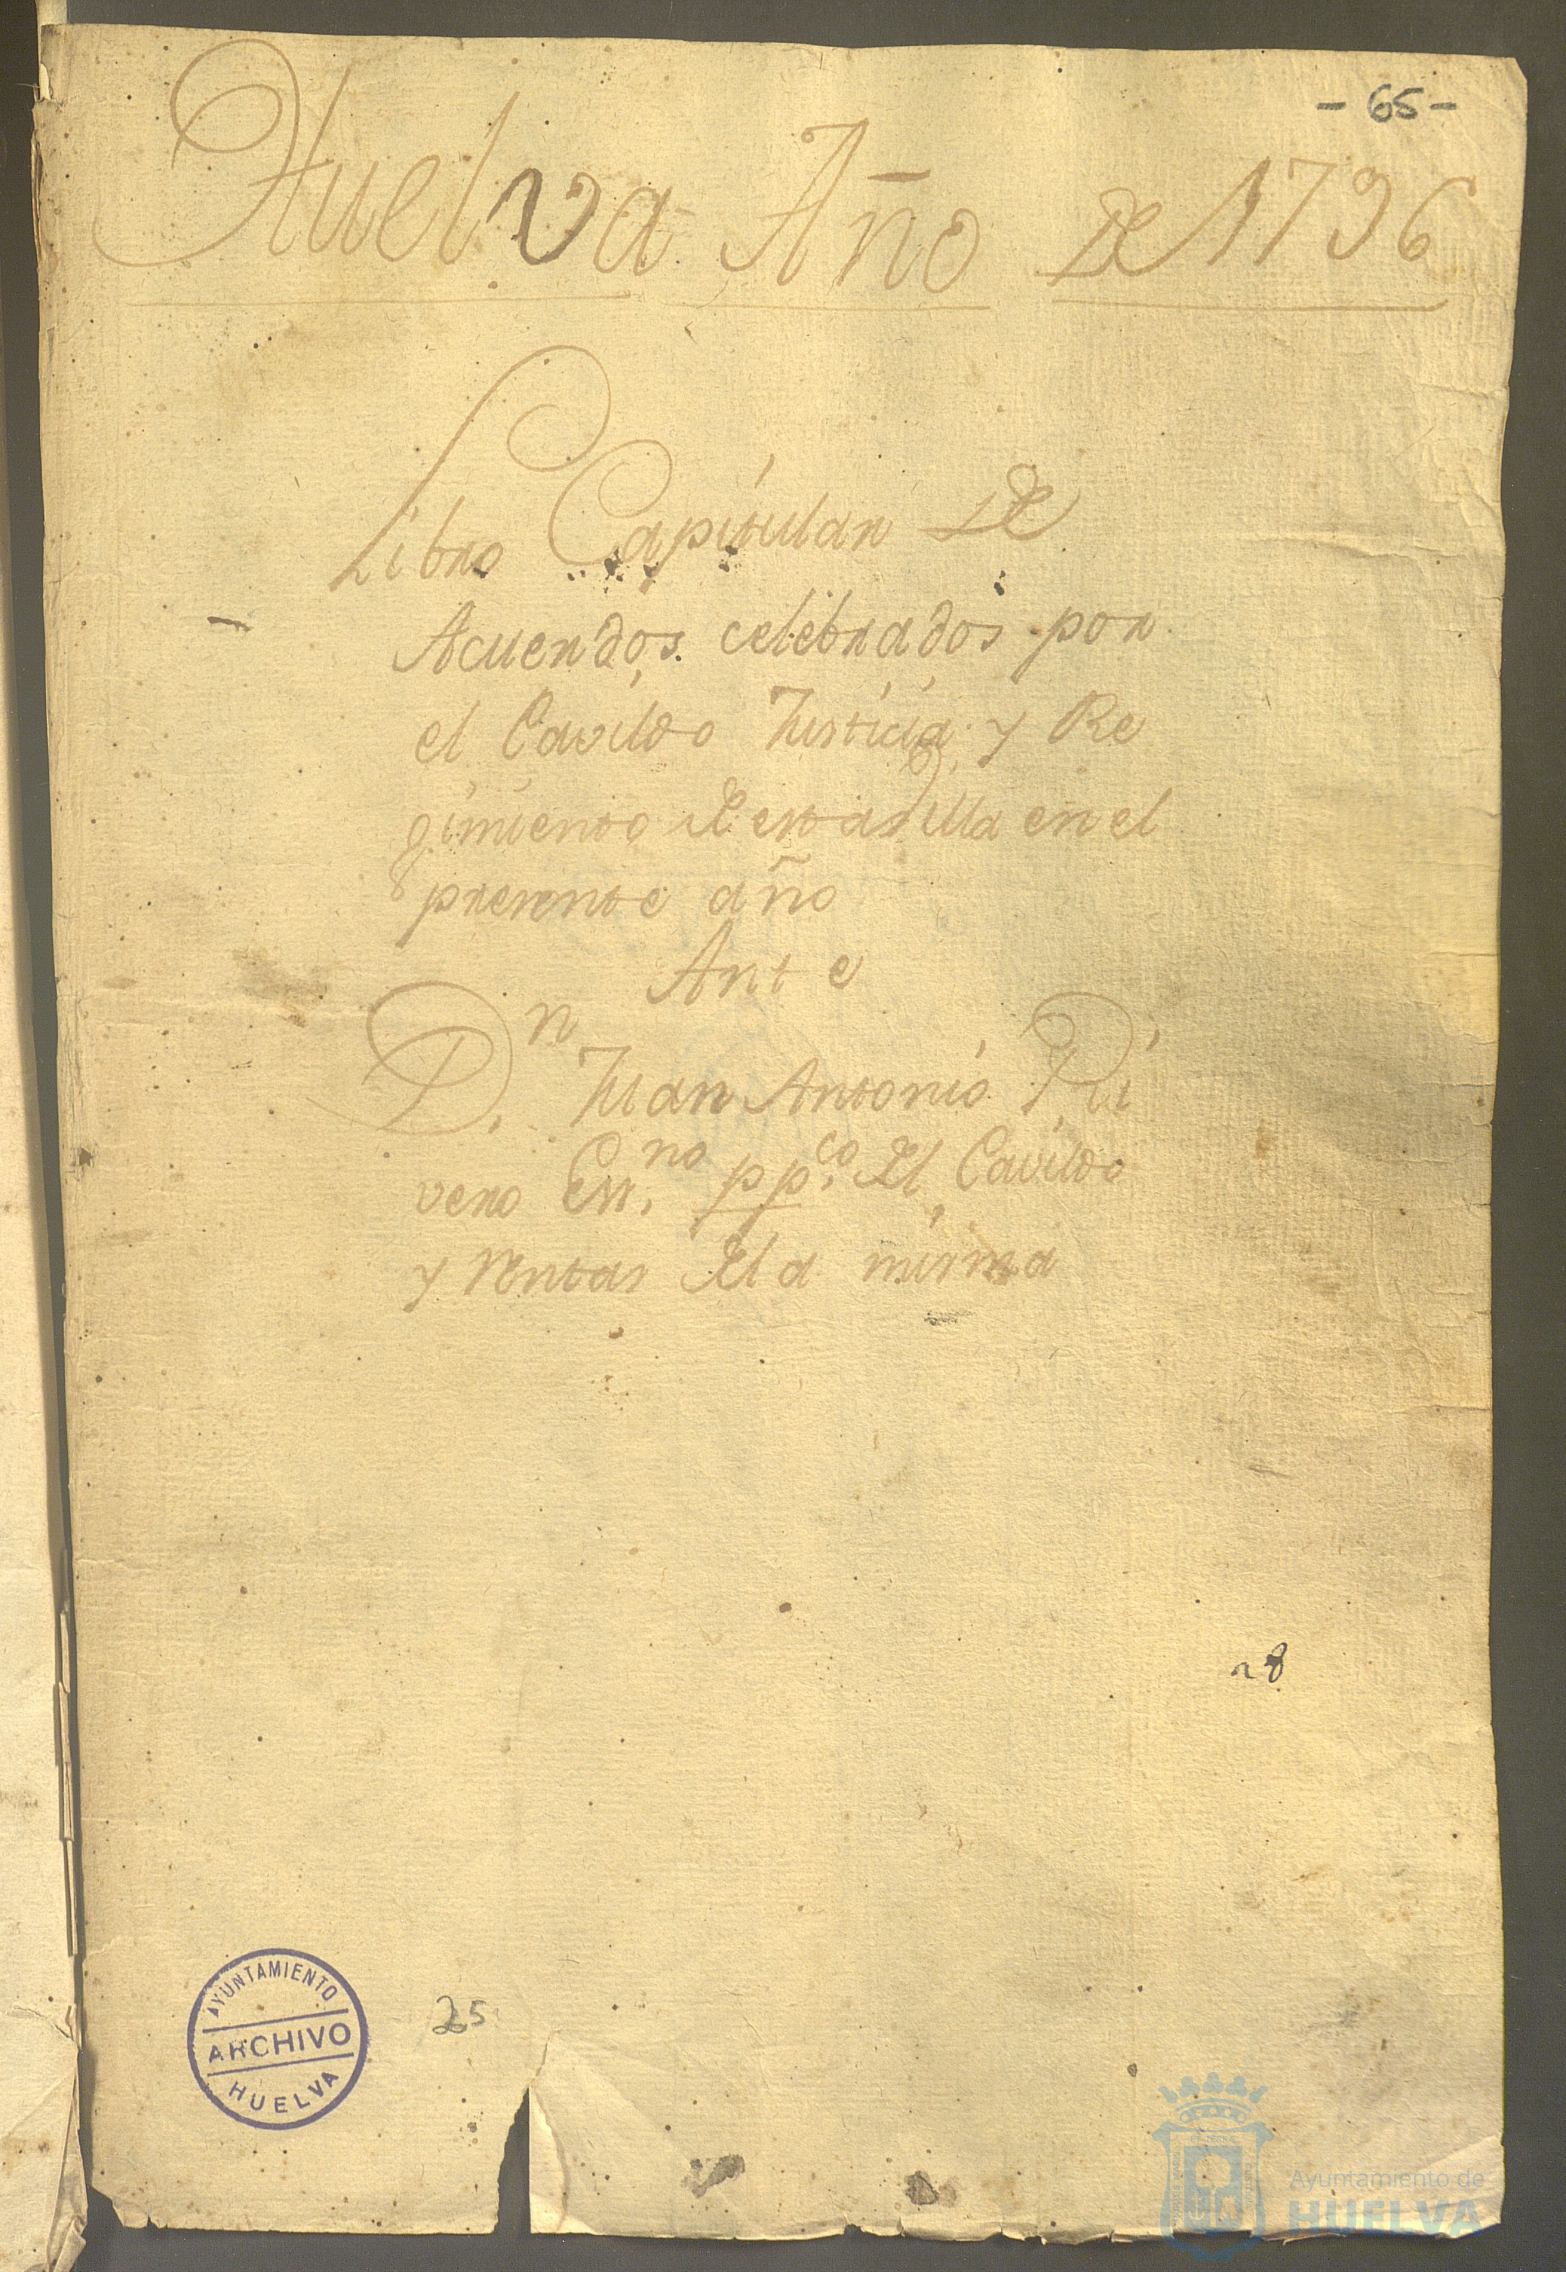 - 65 -
Huelva Año de 1796
Libro Capitular de
Acuerdos celebrados por
el Cavildo Justicia y Re
gimiento de esta Villa en el
presente año
Ante
D.n Juan Antonio Ri
vero Ess.no pp.co del Cavildo
y rentas de la misma
28
25
AYUNTAMIENTO
ARCHIVO
HUELVA
Ayuntamiento de
HUELVA